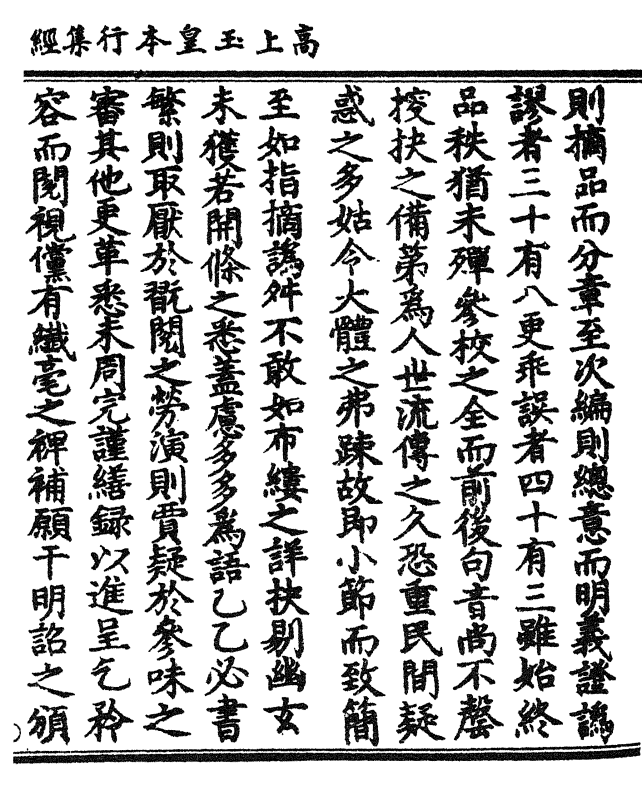 高上玉皇本行集經
則摘品而分章至次編則總意而明義證譌
謬者三十有八更乖誤者四十有三雖始終
品秩猶未殫參校之全而前後句音尚不罄
控抉之備第爲人世流傳之久恐重民間疑
惑之多姑令大體之弗踈故即小節而致簡
至如指摘譌舛不敢如布縷之詳抉剔幽玄
未獲若開條之悉蓋慮多多爲語乙乙必書
繁則取厭於翫閱之勞演則賈疑於參味之
審其他更革悉未周完謹繕録以進呈乞矜
容而閱視儻有纖毫之裨補願干明詔之頒